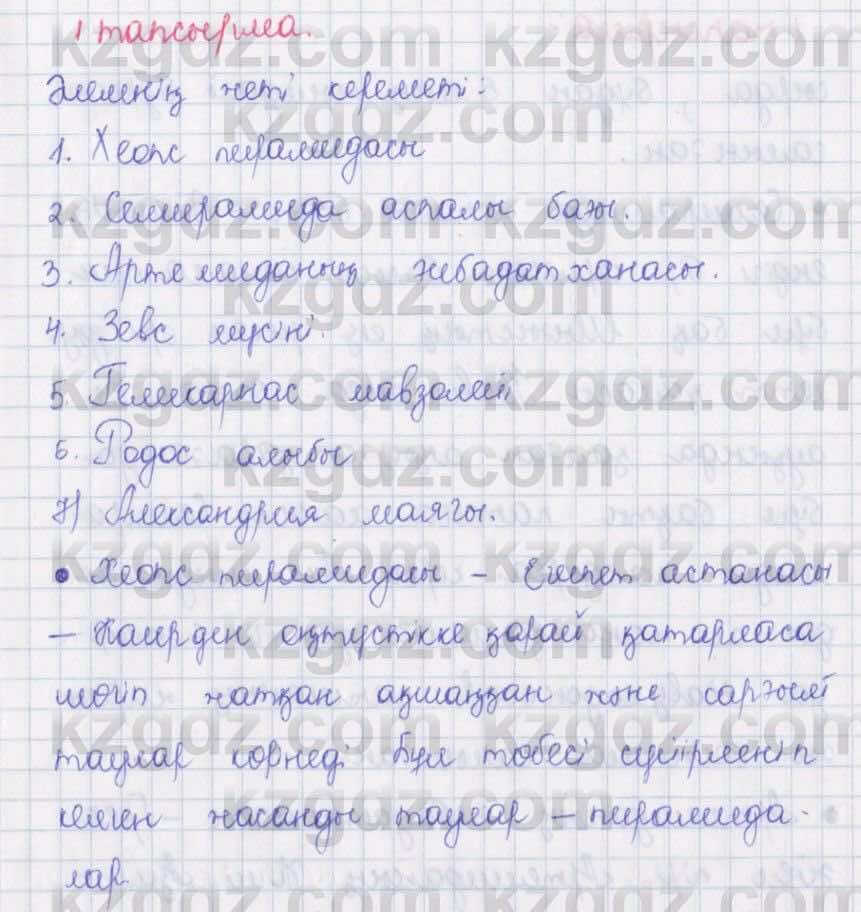 1 тапсырма.
Әлемнің жеті кереметі:
1. Хеопс пирамидасы
2. Семирамида аспалы бағы.
3. Артемиданың ғибадатханасы.
4. Зевс мүсіні.
5. Геликарнас мавзолейі
6. Родос алыбы
7) Александрия маягы.
• Хеопс пирамидасы – Египет астанасы
– Каирден оңтүстікке қарай қатарласа
шөйіп жатқан ақшаңқан және сарғыш
таулар корнеді Бұл төбесі сүйірленіп
келген жасанды таулар – пирамида-
лар.
kzgdz.com kzgdz.com